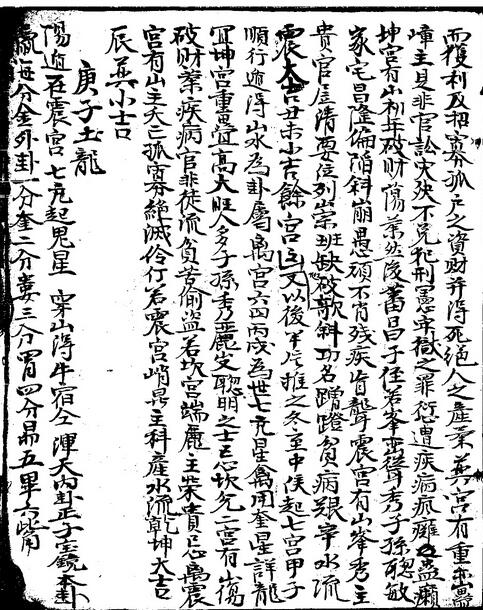 而獲利及招寡孤戶之資財并得死絕人之產業巽宮有重巒
嶂主是非官訟決殃不免犯刑憲牢獄之罪愆遭疾病瘋癱蠱癩
坤宮有山初年破財蕩業然後蕃昌子侄若峯巒聳秀子孫聰敏
家宅昌隆倘陷斜崩愚頑不肖殘疾盲聾震宮有山峯秀主
貴官居清要位列崇班缺破歌斜功名蹭蹬貧病艱辛水流
震大吉丑未小吉餘宮主又以後甲六推之冬至中候起七宮甲子
順行遁得山水為卦屬离宮六四丙戌為世七元星禽用奎星詳龍
宜坤宮重疊高大旺人多子孫秀麗支聰明之士已忌坎兌二宮有山傷
破財業疾病官非徒流貧苦偷盜若坎宮端麗主榮貴已忌离震
宮有山主夭亡孤寡絕滅伶仃若震宮峭是主科產水流乾坤大吉
辰巽小吉
庚子土龍
陽遁在震宮七元起鬼星穿山得牛宿仝渾天內卦正子宝鏡本卦
贏每分金外卦一分奎二分婁三分胃四分昴五畢六觜